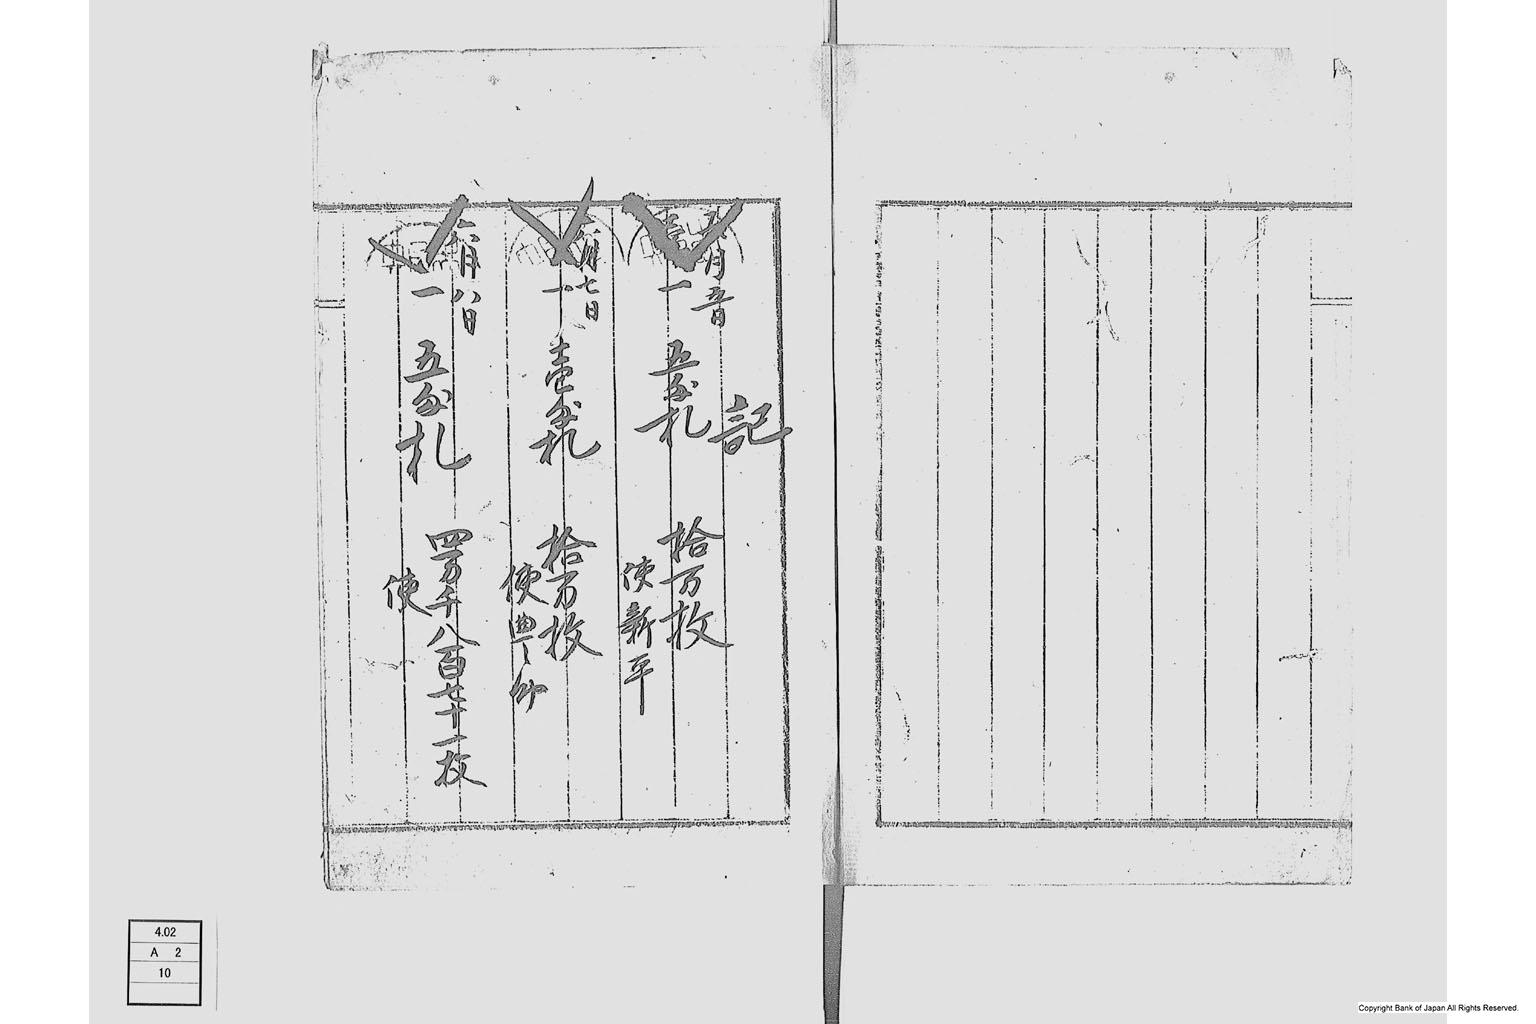 記
六月五日
一 五匁札 拾万枚
使新平
六月七日
一 壱匁札 拾万枚
使
六月八日
一 五匁札 四万千八百七十一枚
使
4.02
A 2
10
Copyright Bank of Japan All Rights Reserved.